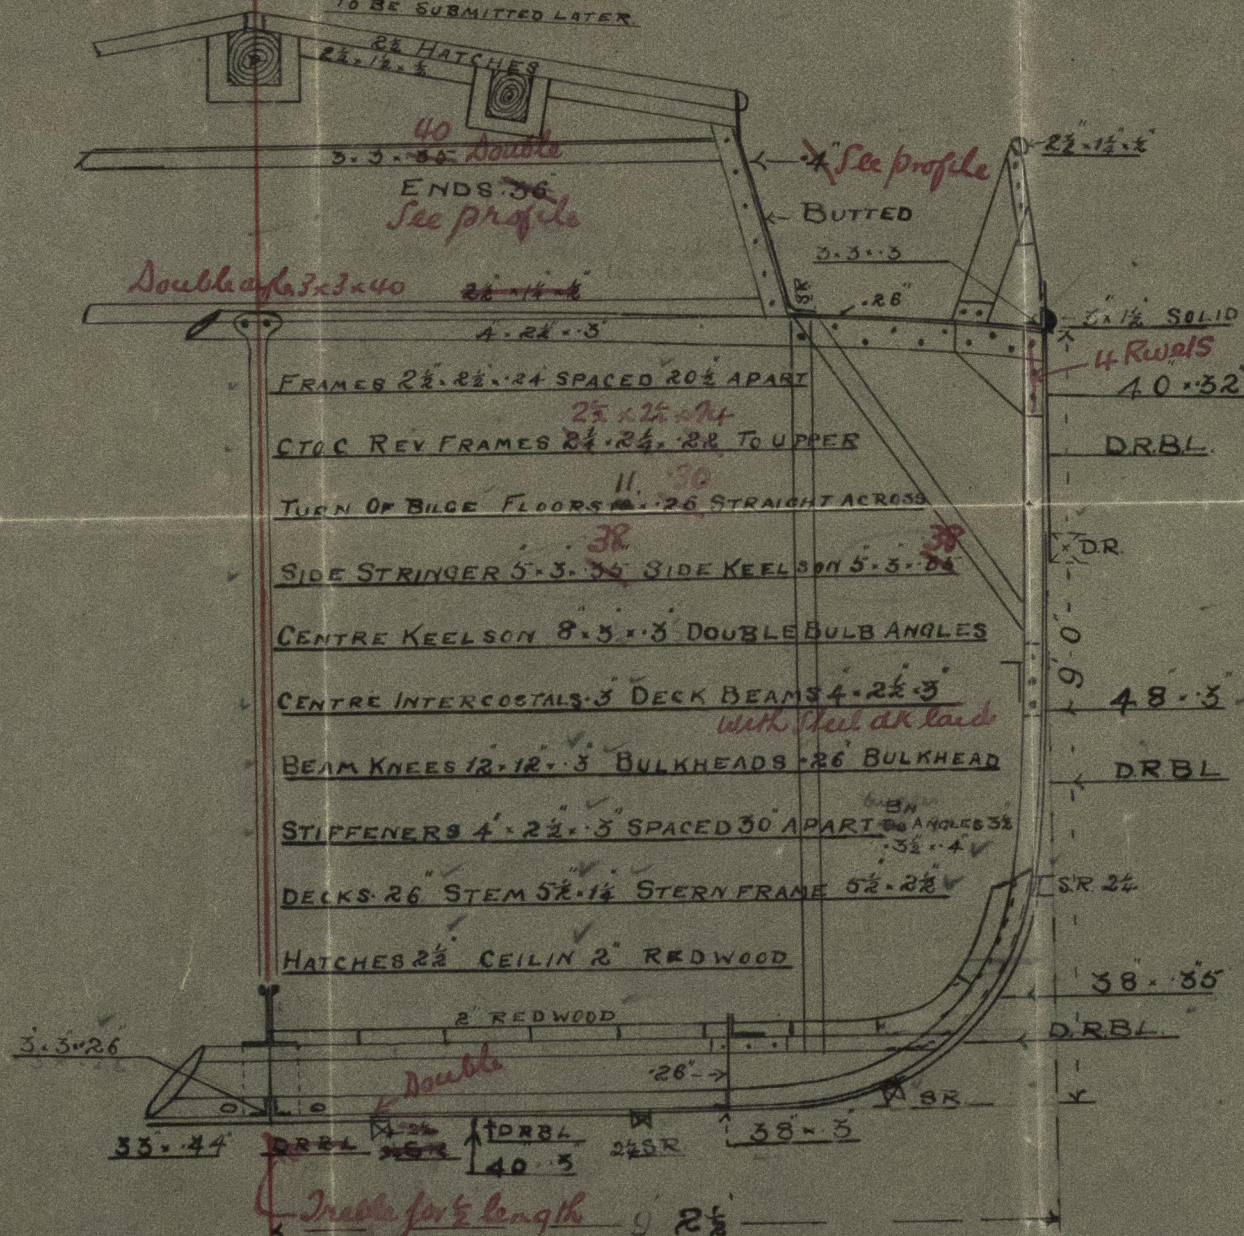 TO BE SUBMITTED LATER.
2½ HATCHES
2½ × 1½ ×
40
3 × 3 × 35 Double
ENDS .36
See profile
.4 See profile
2½" × 1¼" × ½"
BUTTED
3 × 3 × .3
Double angle 3×3×40
2½" × 1¼" × ½"
SR
.26"
4" × 2½" × .3"
3" × 1½" SOLID
4 Rivets
FRAMES 2½" × 2½" × .24 SPACED 20½" APART
40" × .32"
2½ × 2½ × 24
C TO C REV FRAMES 2¼ × 2¼ × .22 TO UPPER
D.R.B.L.
11 .30
TURN OF BILGE FLOORS × .26 STRAIGHT ACROSS
38 38
SIDE STRINGER 5" × 3 × .35 SIDE KEELSON 5" × 3 × .35
D.R.
CENTRE KEELSON 8" × 3" × .3" DOUBLE BULB ANGLES
9'-0"
CENTRE INTERCOSTALS .3" DECK BEAMS 4" × 2½" × .3"
48" × .3"
with Steel dk laid
BEAM KNEES 12" × 12" × .3" BULKHEADS .26" BULKHEAD
D.R.B.L
STIFFENERS 4" × 2½" × .3" SPACED 30" APART BH ANGLES 3½
× 3½" × .4"
DECKS .26" STEM 5½" × 1¼" STERN FRAME 5½" × 2½"
S.R. 2¼
HATCHES 2½" CEILIN 2" REDWOOD
38" × .35
2" REDWOOD
D.R.B.L.
3 × 3 × .26"
Double
.26"
SR
33" × .44" D.R.B.L SR D.R.B.L 2¼ SR 38" × .3"
40" × .3"
Treble for ½ length
9' 2½"